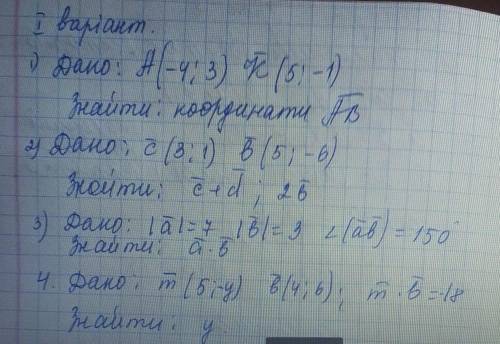 I варіант.
1) Дано: A(-4; 3) K(5; -1)
Знайти: координати AB
2) Дано: c(3; 1) b(5; -6)
Знойти: c+d; 2b
3) Дано: |a|=7 |b|=3 ∠(ab)=150°
Знайти: a·b
4. Дано: m(5; -y) b(4; 6); m·b=-18
Знайти: y